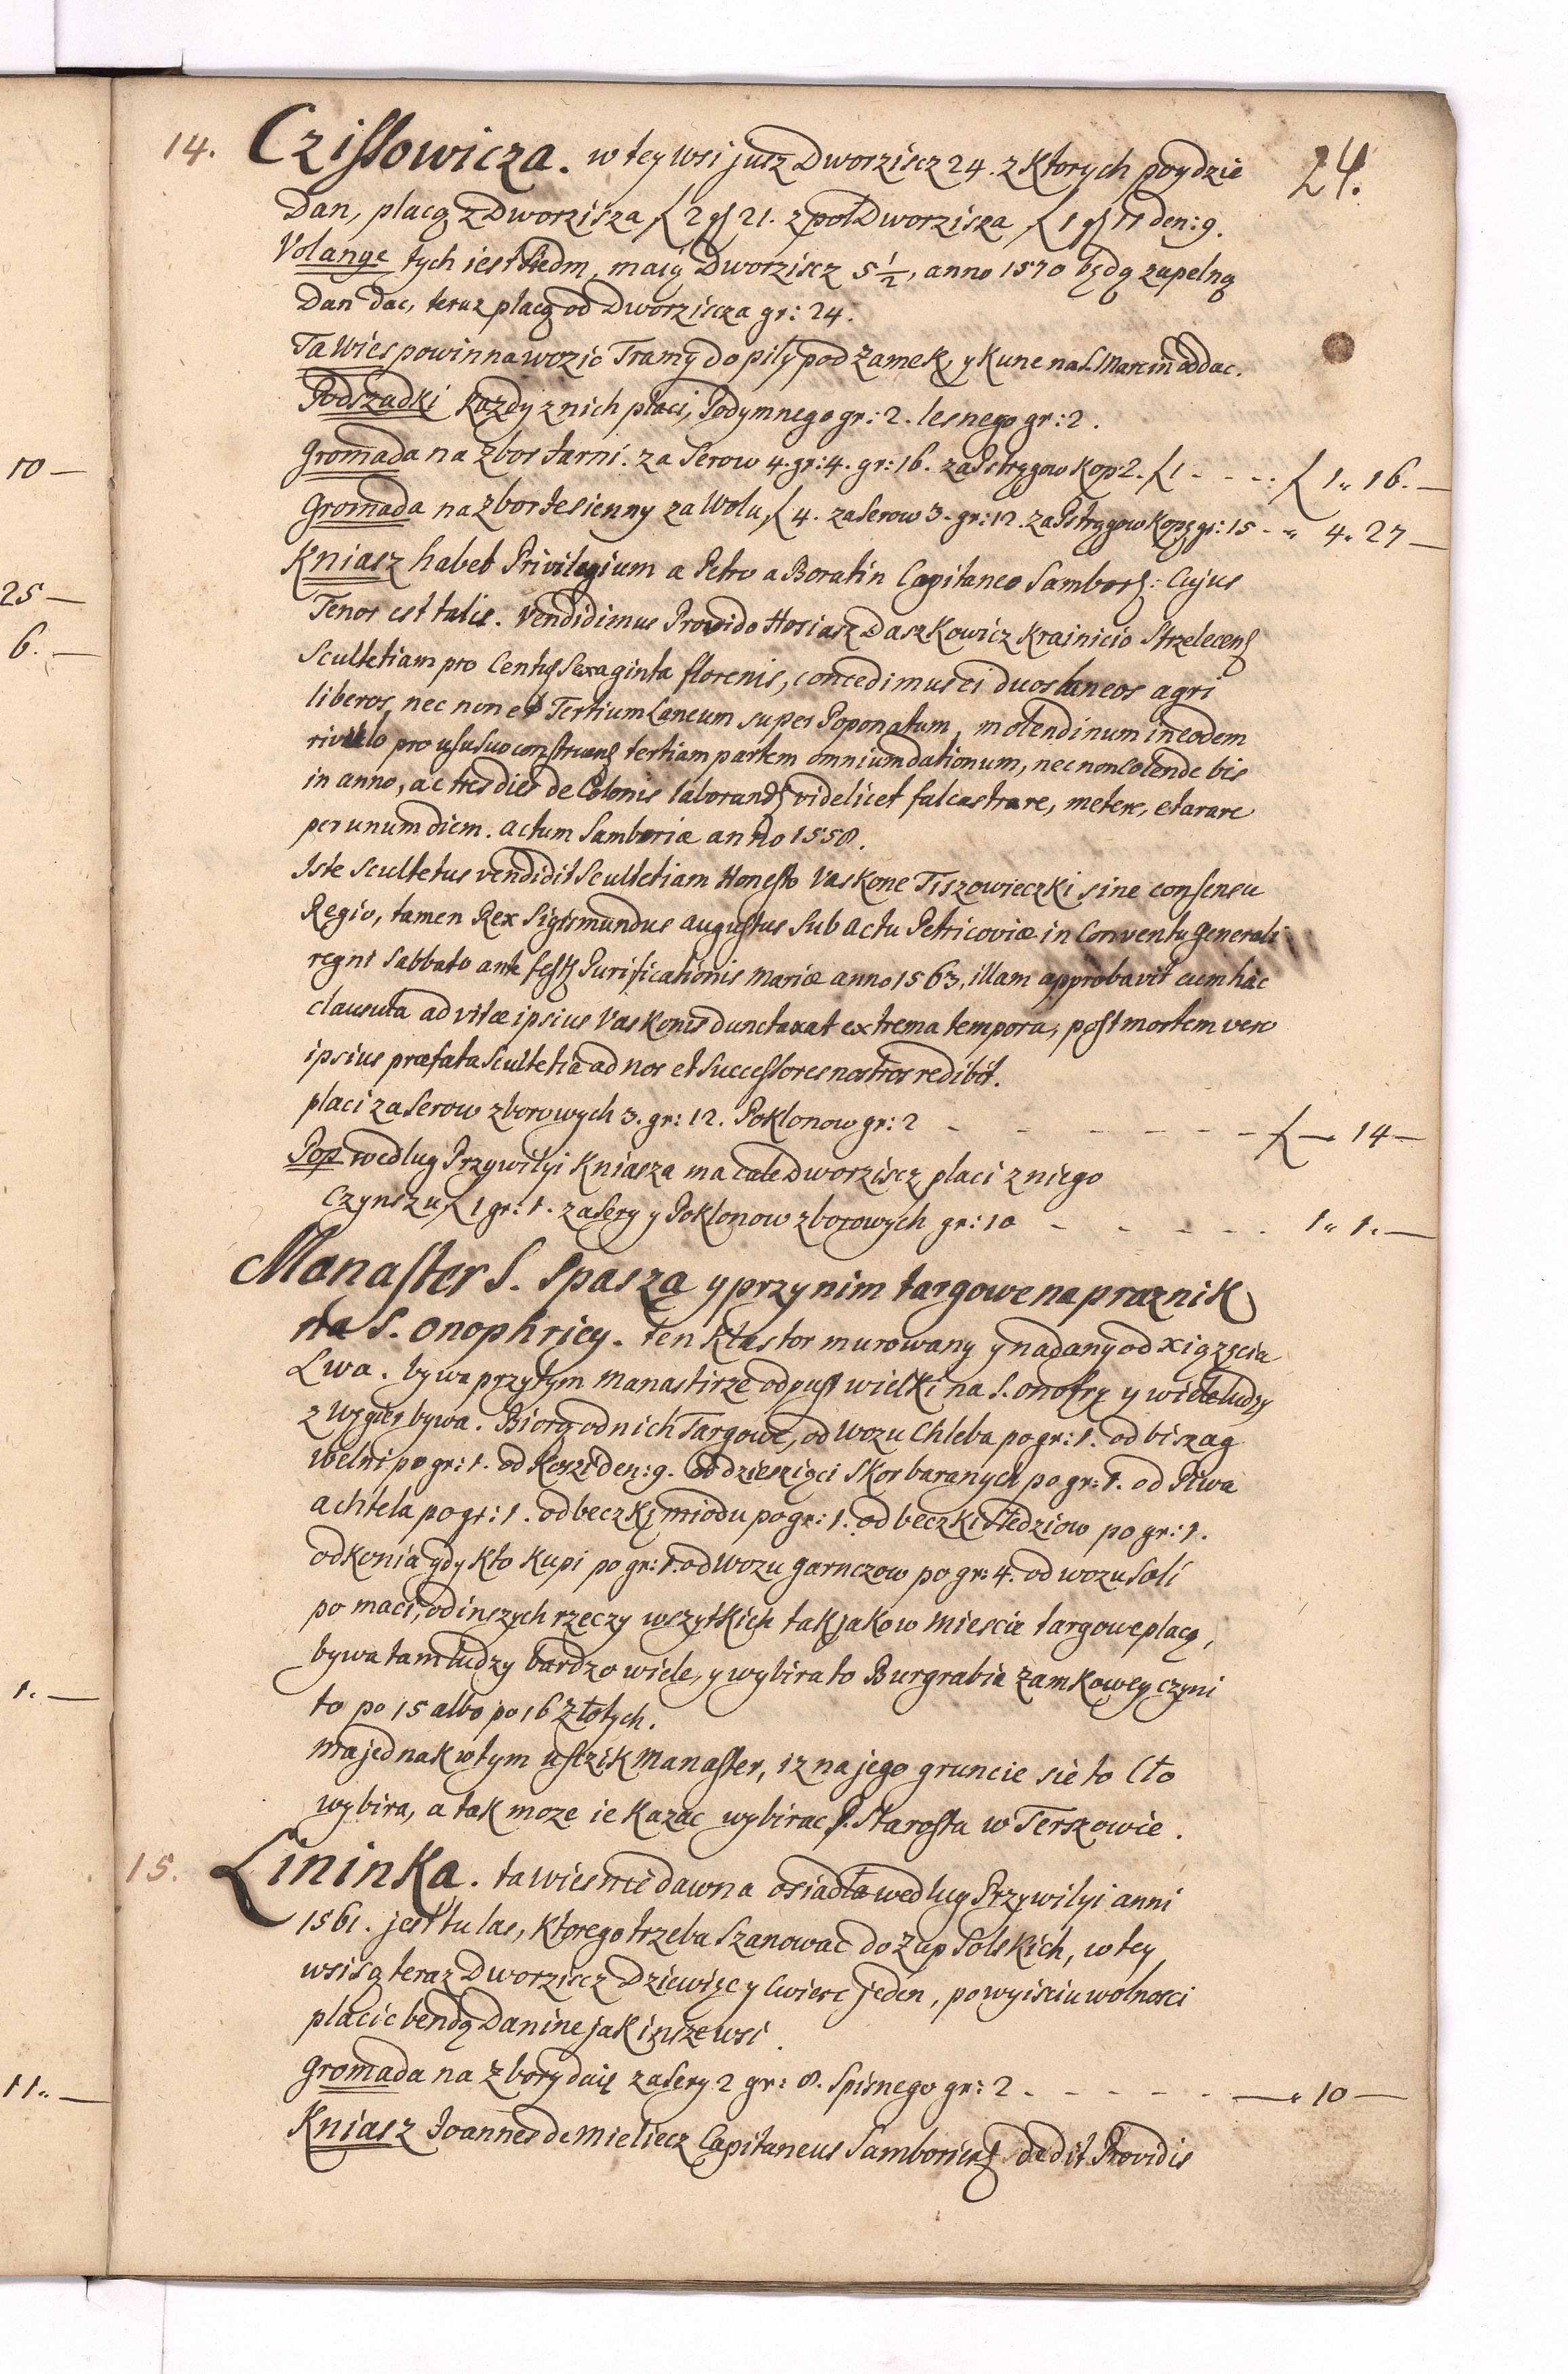 24.
14. Czissowicza. w tey Wsi jusz Dworziscz 24. z Ktorych poydzie
Dan, placą z Dworzisza ʄ 2 gʃ 21. z poł Dworzisza ʄ 1 gʃ 11 den: 9.
Volangę tych iest Siedm, maią Dworziscz 5 1/2, anno 1570 będą zapelną
Dan dac, teraz placą od Dworzisza gr: 24.
Ta Wies powinna wozic Tramy do piły pod Zamek, y Kune na S. Marcin oddac.
Podszadki kozdy z nich płaci, Podymnego gr: 2. lesnego gr: 2.
Gromada na zbor Jarni. za Serow 4. gr: 4. gr: 16. za Pstrągow Kop 2. ʄ 1 - - - : ʄ 1 „ 16. —
Gromada na zbor Jesienny za Wolu ʄ 4. za Serow 3. gr: 12. za Pstrągow Kopę gr: 15 - „ 4 „ 27 —
Kniasz habet Privilegium a Petro a Boratin Capitaneo Sambors: Cujus
Tenor est talis. Vendidimus Provido Hosiasz Daszkowicz Krainicio Strzelecens
Scultetiam pro Centum Sexaginta florenis, concedimus ei duos laneos agri
liberos, nec non et Tertium Laneum super Poponatum, molendinum in eodem
rivulo pro usu suo construens tertiam partem omnium dationum, nec non Colende bis
in anno, ac tres dies de Colonis laborand videlicet falcastrare, metere, et arare
per unum diem. actum Samboriæ anno 1558.
Iste Scultetus vendidit Scultetiam Honesto Vaskone Tiszowieczki sine consensu
Regio, tamen Rex Sigismundus augustus Sub actu Petricoviæ in Conventu Generali
regni Sabbato ante festum Purificationis Mariæ anno 1563, illam approbavit cum hac
clausula ad vitæ ipsius Vaskonis dunctaxat extrema tempora, post mortem vero
ipsius præfata Scultetia ad nos et Successores nostros redibit.
płaci za Serow zborowych 3. gr: 12. Poklonow gr: 2 - - - - - - - ʄ — 14 —
Pop według Przywilyi Kniasza ma całe Dworziscz płaci z niego
Czynszu ʄ 1 gr: 1. za Sery y Poklonow zborowych gr: 10 - - - - - 1 „ 1. —
Manaster S. Spasza y przy nim targowe na praznik
na S. Onophriey. ten Klasztor murowany y nadany od Xiązęcia
Lwa. bywa przy tym Manastirze odpust wielki na S. Onofry y wiele ludzy
z Węgier bywa. Biorą od nich Targowe, od Wozu Chleba po gr: 1. od biszag
Welni po gr: 1. od Koszi den: 9. od dziesziąci Skor baranych po gr: 1. od Piwa
achtela po gr: 1. od beczki miodu po gr: 1. od beczki sledziow po gr: 1.
od konia gdy kto kupi po gr: 1. od Wozu garnczow po gr: 4. od wozu Soli
po maci, od inszych rzeczy wszytkich tak jako w Miescie targowe placą,
bywa tam ludzy bardzo wiele, y wybira to Burgrabia Zamkowey czyni
to po 15 albo po 16 złotych.
ma jednak w tym uscisk Manaster, iz na jego gruncie sie to Cło
wybira, a tak moze ie kazac wybirac P. Starosta w Terszowie.
15. Lininka. ta wies nie dawna osiadła według Przywilyi anni
1561. jest tu las, ktorego trzeba Szanowac do Zup Solskich, w tey
wsi są teraz Dworziscz Dziewięc y Cwierc jeden, po wyisciu wolnosci
placic bendą Danine jak insze wsi.
Gromada na Zbory daię za Sery 2 gr: 8. Spisnego gr: 2 - - - - - — „ 10 —
Kniasz Joannes de Mieliecz Capitaneus Samboriens dedit Providis
10 —
25 —
6. —
1. —
11 „ —